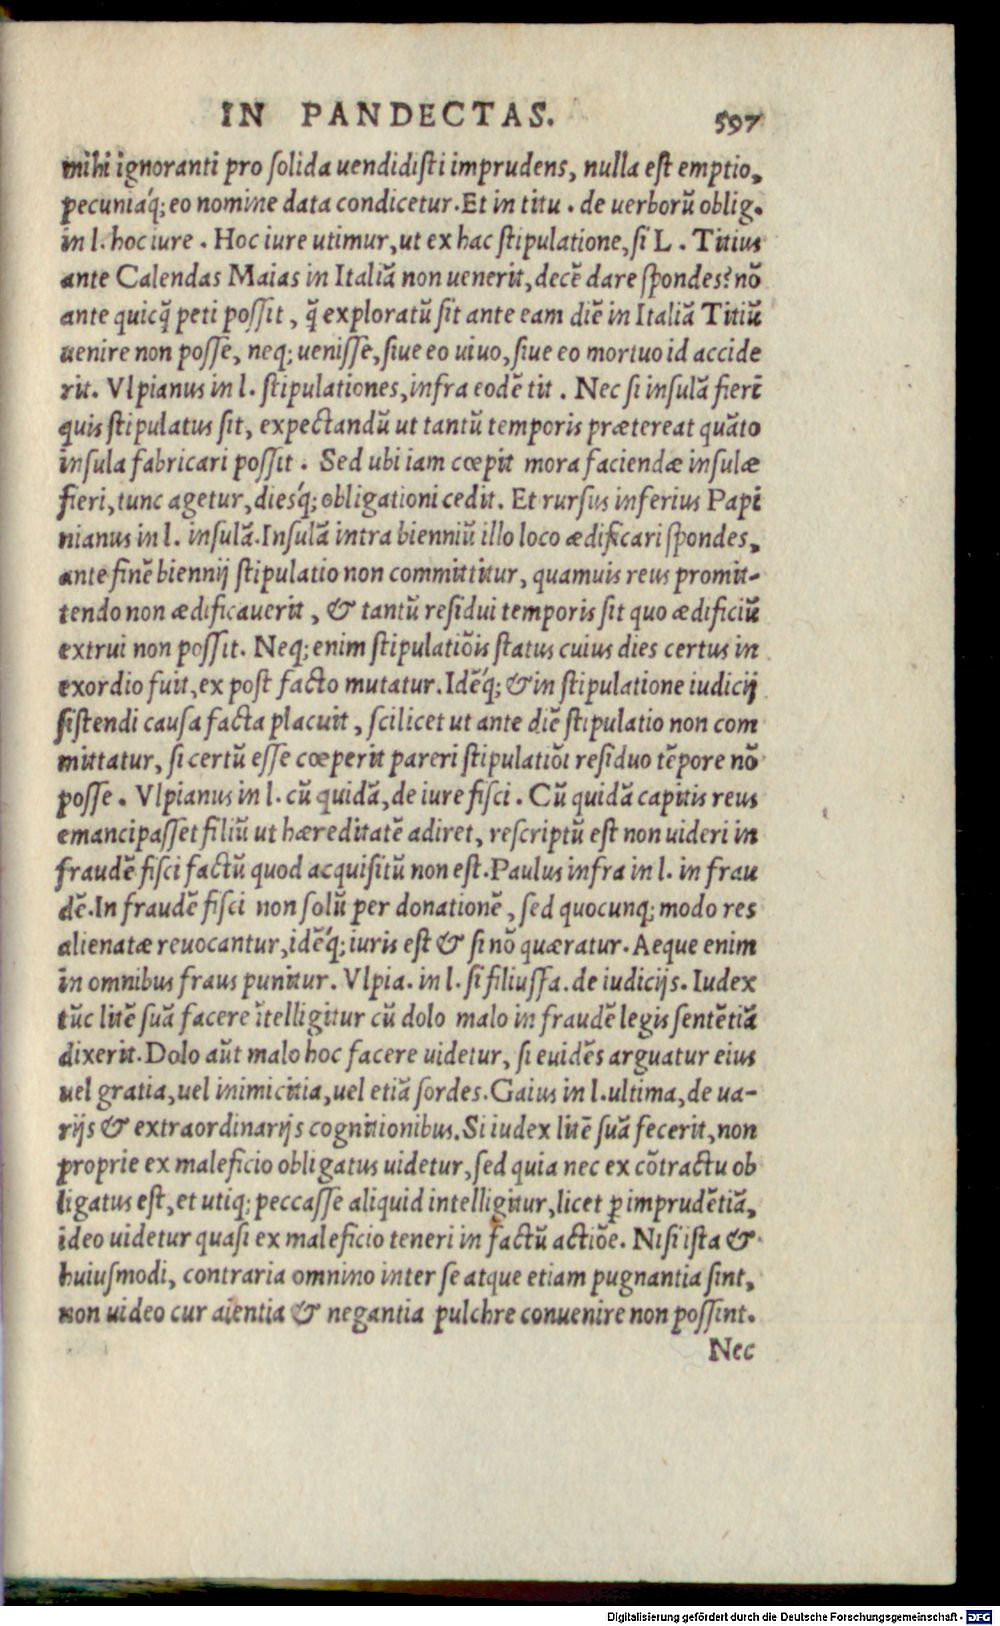 IN PANDECTAS. 597
mihi ignoranti pro solida uendidisti imprudens, nulla est emptio,
pecuniaq́; eo nomine data condicetur. Et in titu. de uerborũ oblig.
in l. hoc iure. Hoc iure utimur, ut ex hac stipulatione, si L. Titius
ante Calendas Maias in Italiã non uenerit, decẽ dare spondes? nõ
ante quicq̃ peti possit, q̃ exploratũ sit ante eam diẽ in Italiã Titiũ
uenire non posse, neq; uenisse, siue eo uiuo, siue eo mortuo id accide
rit. Vlpianus in l. stipulationes, infra eodẽ tit. Nec si insulã fierĩ
quis stipulatus sit, expectandũ ut tantũ temporis prætereat quãto
insula fabricari possit. Sed ubi iam cœpit mora faciendæ insulæ
fieri, tunc agetur, diesq́; obligationi cedit. Et rursus inferius Papi
nianus in l. insulã. Insulã intra bienniũ illo loco ædificari spondes,
ante finẽ biennij stipulatio non committitur, quamuis reus promit-
tendo non ædificauerit, & tantũ residui temporis sit quo ædificiũ
extrui non possit. Neq; enim stipulatiõis status cuius dies certus in
exordio fuit, ex post facto mutatur. Idẽq́; & in stipulatione iudicij
sistendi causa facta placuit, scilicet ut ante diẽ stipulatio non com
mittatur, si certũ esse cœperit pareri stipulatiõi residuo tẽpore nõ
posse. Vlpianus in l. cũ quidã, de iure fisci. Cũ quidã capitis reus
emancipasset filiũ ut hæreditatẽ adiret, rescriptũ est non uideri in
fraudẽ fisci factũ quod acquisitũ non est. Paulus infra in l. in frau
dẽ. In fraudẽ fisci non solũ per donationẽ, sed quocunq; modo res
alienatæ reuocantur, idẽq́; iuris est & si nõ quæratur. Aeque enim
in omnibus fraus punitur. Vlpia. in l. si filiusfa. de iudicijs. Iudex
tũc litẽ suã facere ĩtelligitur cũ dolo malo in fraudẽ legis sentẽtiã
dixerit. Dolo aũt malo hoc facere uidetur, si euidẽs arguatur eius
uel gratia, uel inimicitia, uel etiã sordes. Gaius in l. ultima, de ua-
rijs & extraordinarijs cognitionibus. Si iudex litẽ suã fecerit, non
proprie ex maleficio obligatus uidetur, sed quia nec ex cõtractu ob
ligatus est, et utiq; peccasse aliquid intelligitur, licet ꝑ imprudẽtiã,
ideo uidetur quasi ex maleficio teneri in factũ actiõe. Nisi ista &
huiusmodi, contraria omnino inter se atque etiam pugnantia sint,
non uideo cur aientia & negantia pulchre conuenire non possint.
Nec
Digitalisierung gefördert durch die Deutsche Forschungsgemeinschaft - DFG